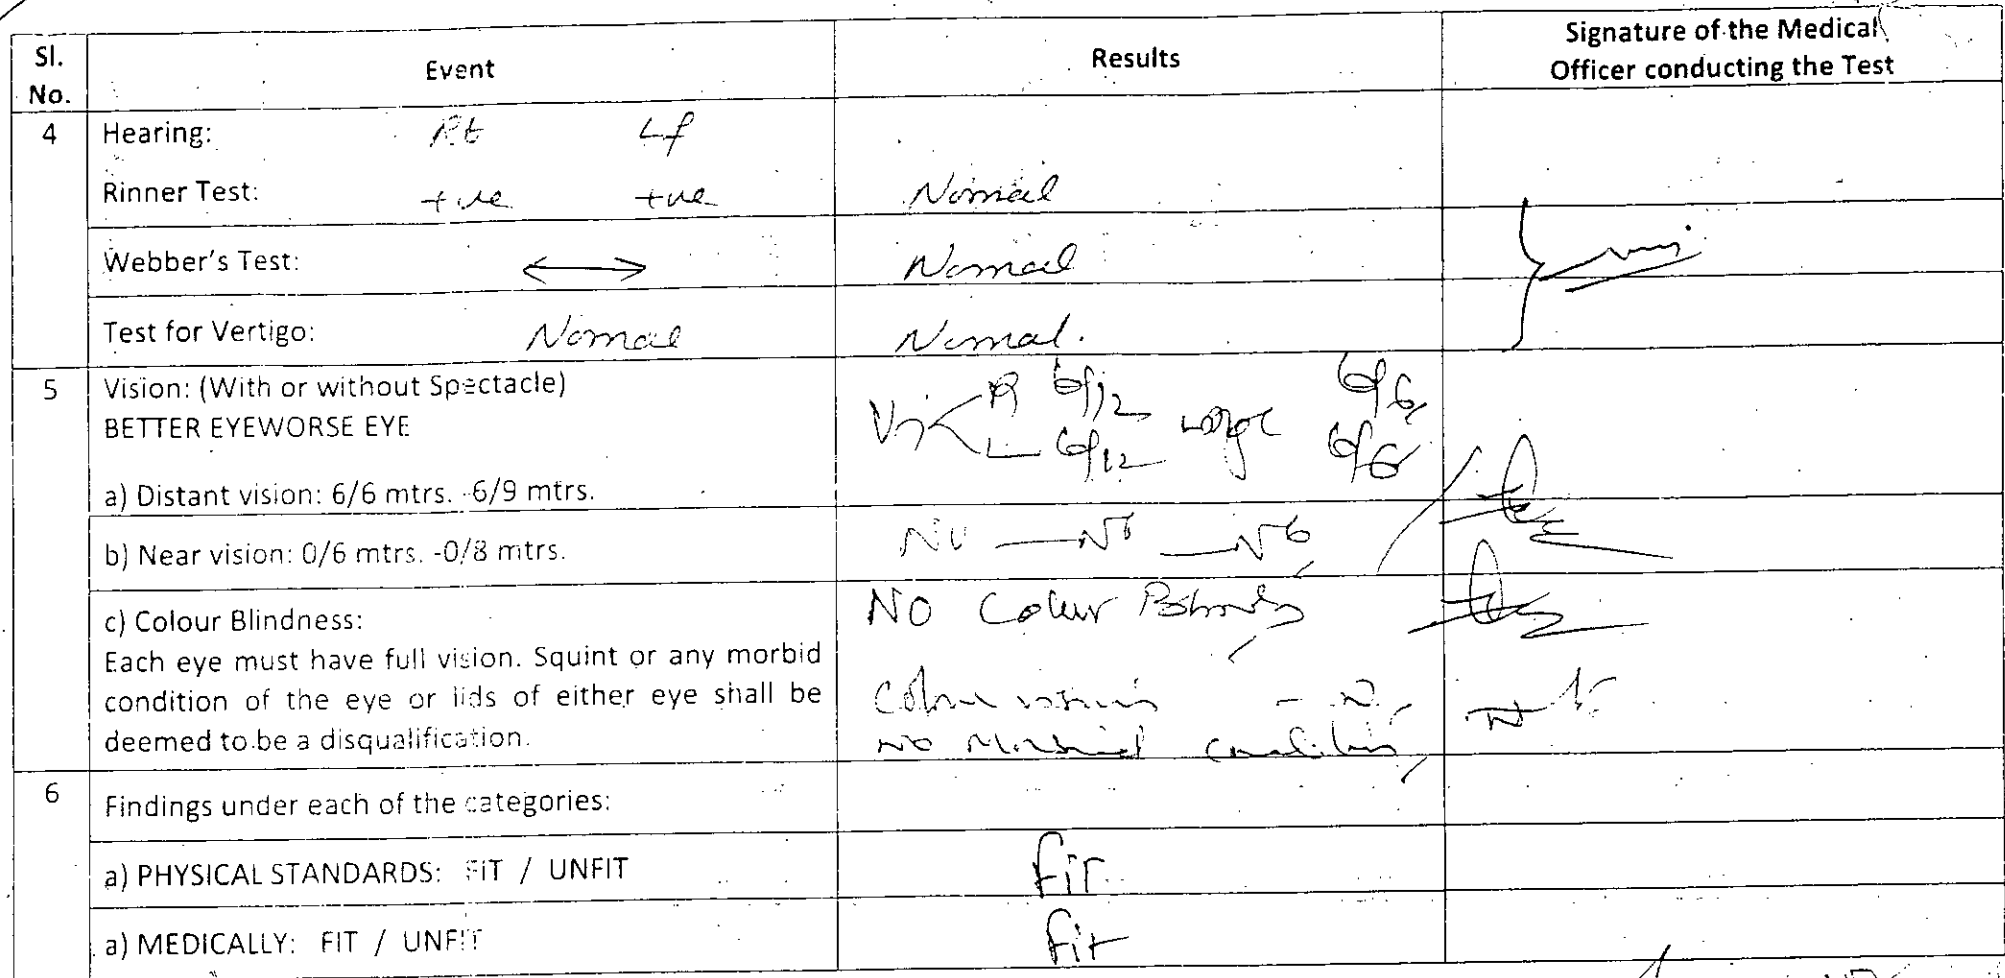 Sl. No. Event Results Signature of the Medical Officer conducting the Test
4 Hearing: Rt Lf
Rinner Test: +ve +ve Normal
Webber's Test: ↔ Normal
Test for Vertigo: Normal Normal.
5 Vision: (With or without Spectacle)
BETTER EYEWORSE EYE
R 6/12 6/6
L 6/12 6/6
a) Distant vision: 6/6 mtrs. -6/9 mtrs.
b) Near vision: 0/6 mtrs. -0/8 mtrs. NV — N6 — N6
c) Colour Blindness: NO Colour
Each eye must have full vision. Squint or any morbid
condition of the eye or lids of either eye shall be
deemed to be a disqualification.
Colour vision - N
No Morbid condition
6 Findings under each of the categories:
a) PHYSICAL STANDARDS: FIT / UNFIT Fit
a) MEDICALLY: FIT / UNFIT Fit